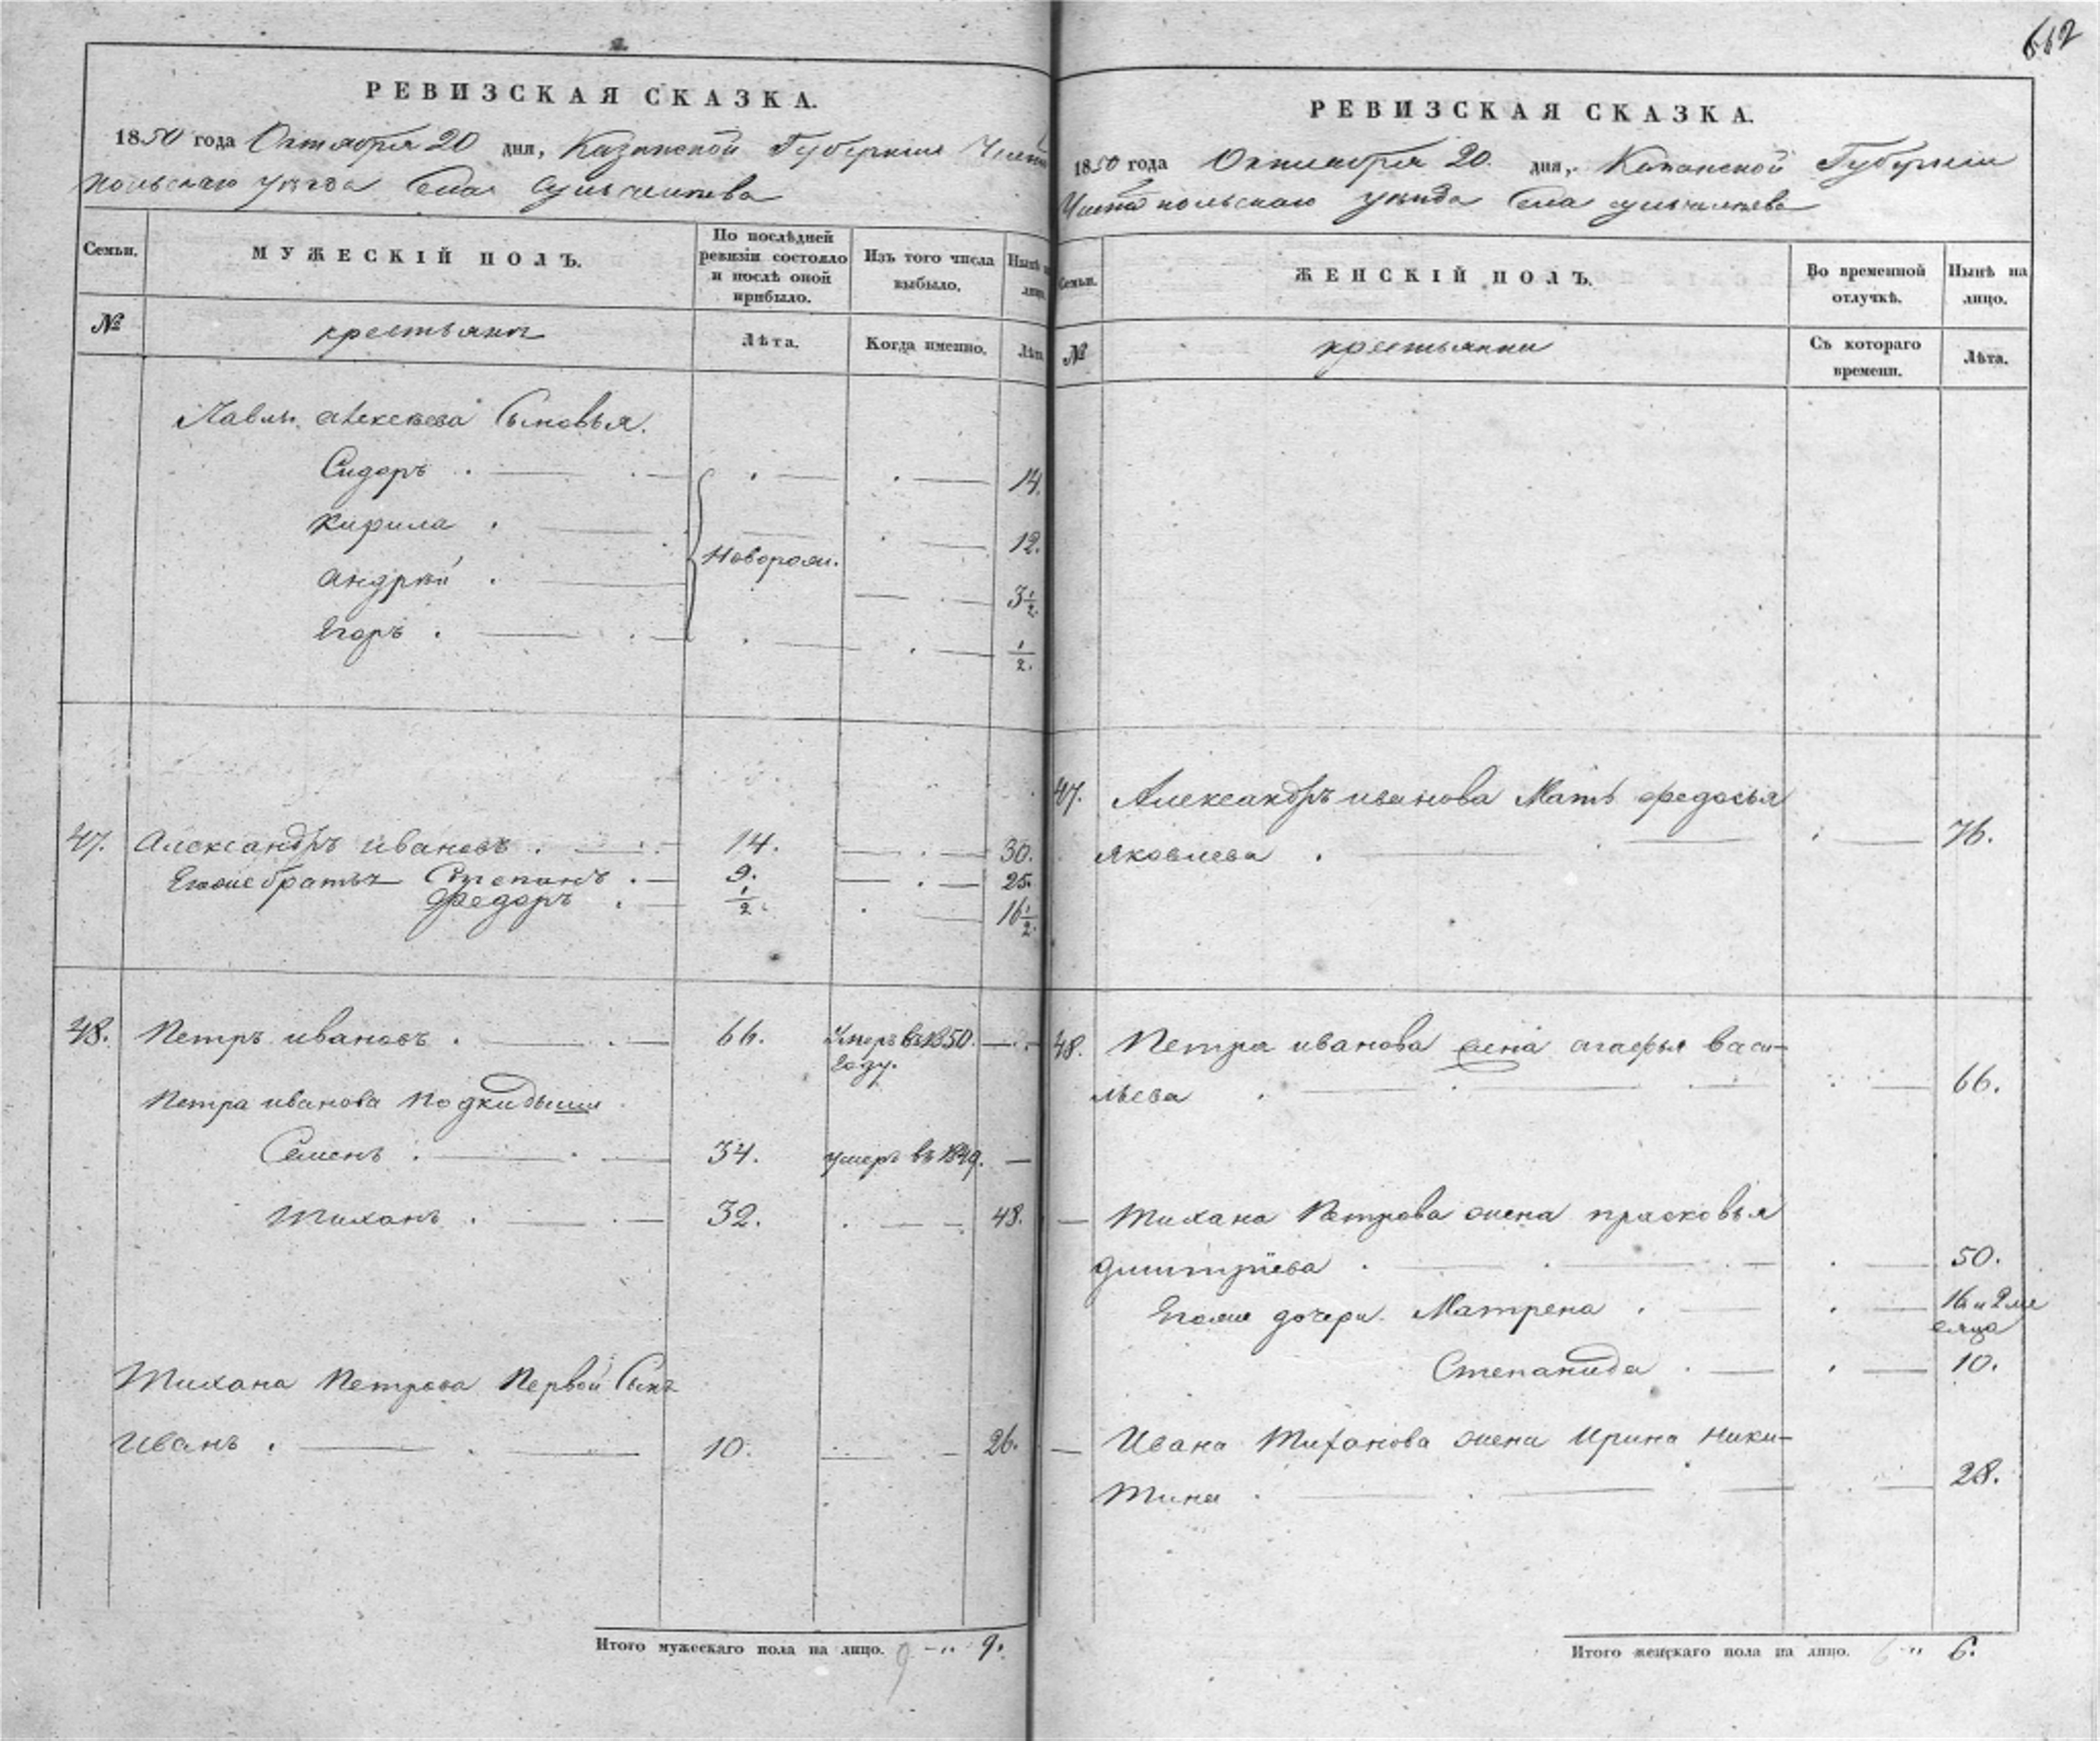 612
РЕВИЗСКАЯ СКАЗКА.
1850 года Октября 20 дня, Казанской Губернии Чисто
польскаго уезда Села
Семьи.
МУЖЕСКІЙ ПОЛЪ.
По послѣдней
ревизіи состояло
и послѣ оной
прибыло.
Изъ того числа
выбыло.
Нынѣ на
лицо.
№
крестьянъ
Лѣта.
Когда именно.
Лѣта
Павла Алексѣева Сыновья.
Сидоръ 14.
Кирила 12.
Новорож.
Андрей 3 1/2.
Егоръ 1/2.
47. Александръ Ивановъ 14. 30.
Егоже братья Степанъ 9. 25.
Федоръ 1/2. 16 1/2.
48. Петръ Ивановъ 66. Умеръ въ 1850.
году.
Петра Иванова подкидыши
Семенъ 34. умеръ въ 1849.
Тиханъ 32. 48.
Тихана Петрова Первой Сынъ
Иванъ 10. 26.
Итого мужескаго пола на лицо. 9 9.
РЕВИЗСКАЯ СКАЗКА.
1850 года Октября 20. дня, Казанской Губерніи
Чистопольскаго уезда Села
Семьи.
ЖЕНСКІЙ ПОЛЪ.
Во временной
отлучкѣ.
Нынѣ на
лицо.
№
крестьянки
Съ котораго
времени.
Лѣта.
47. Александръ Иванова Мать Федосья
Яковлева 76.
48. Петра Иванова жена Агафья Васи-
льева 66.
Тихана Петрова жена Прасковья
Дмитріева 50.
Егоже дочери Матрена 16 и 2 ме
сяца
Степанида 10.
Ивана Тиханова жена Ирина Ники-
тина 28.
Итого женскаго пола на лицо. 6 6.